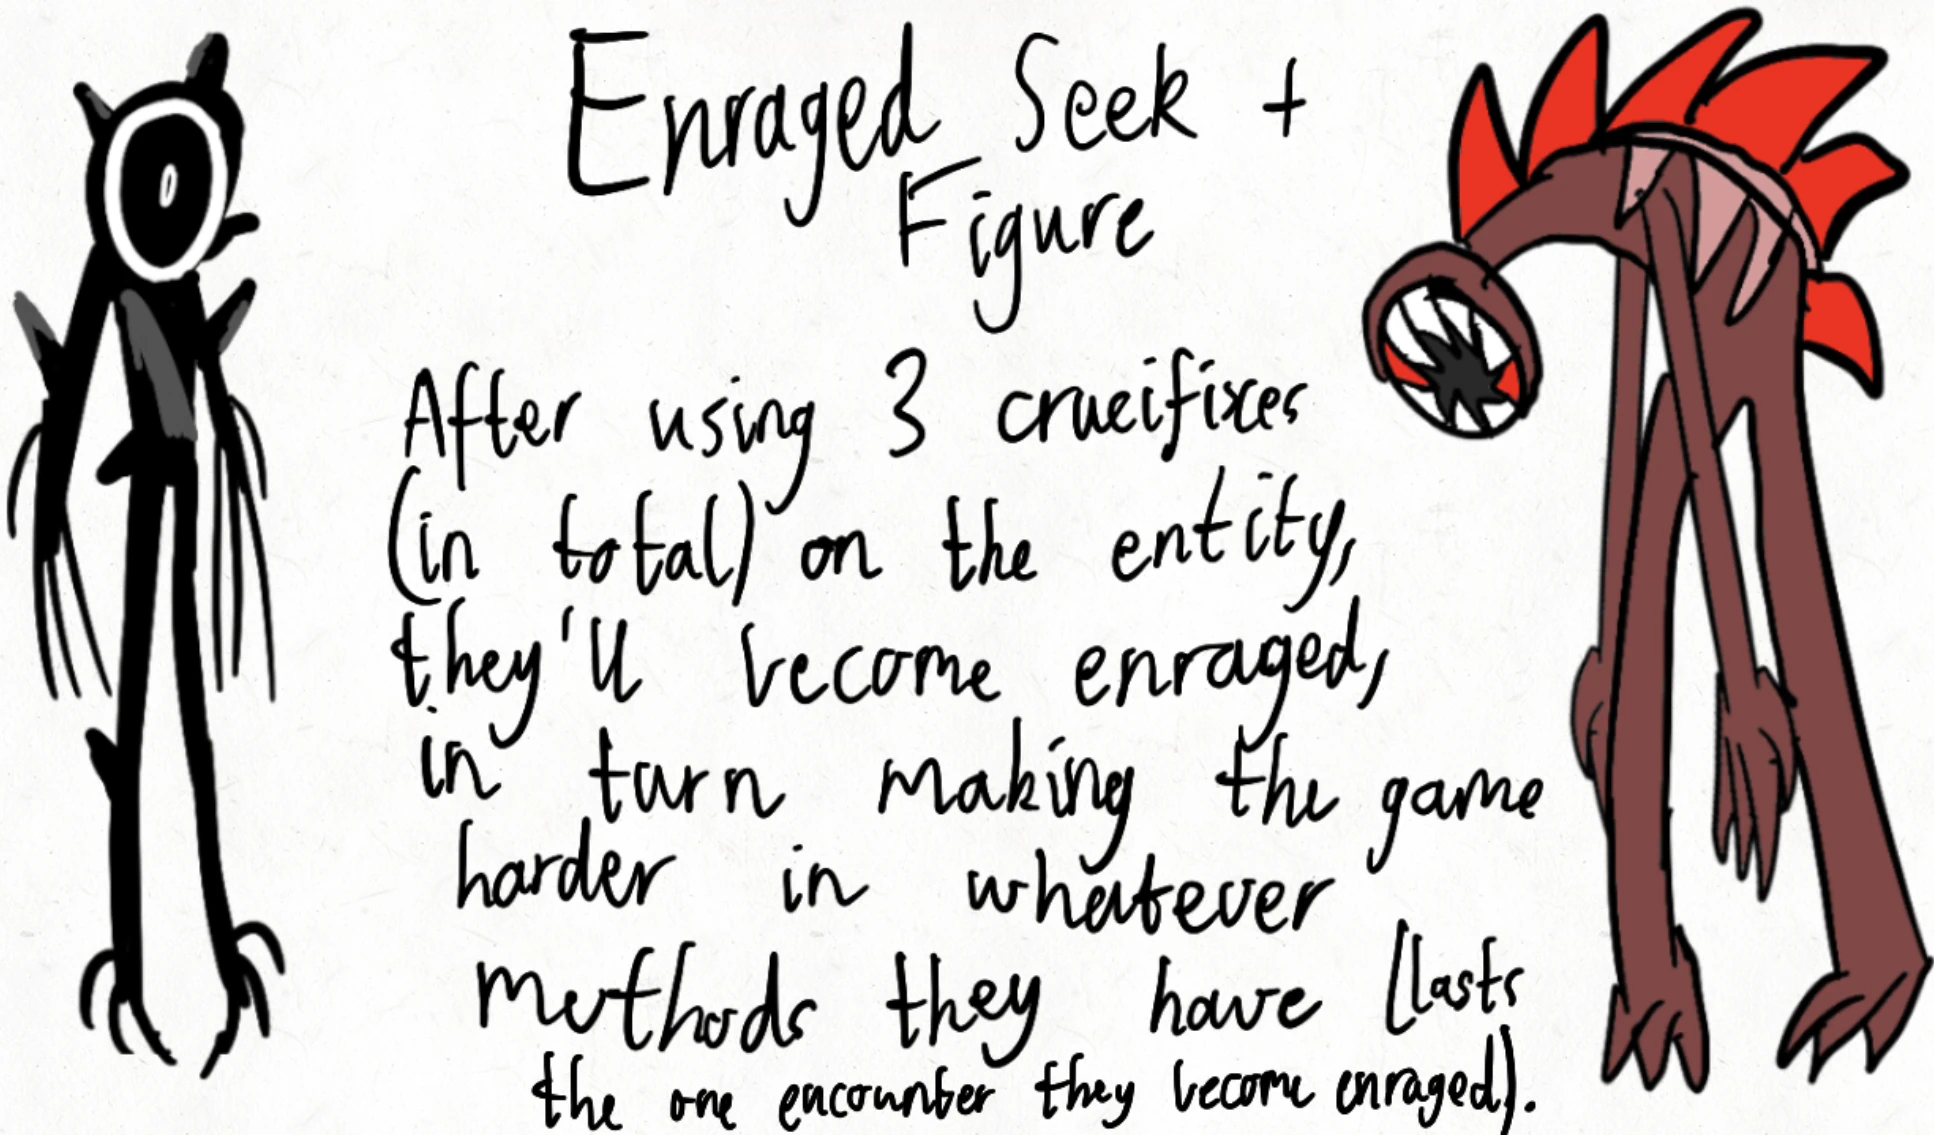 Enraged Seek +
Figure
After using 3 crucifixes
(in total) on the entity,
they'll become enraged,
in turn making the game
harder in whatever
methods they have (lasts
the one encounter they become enraged).